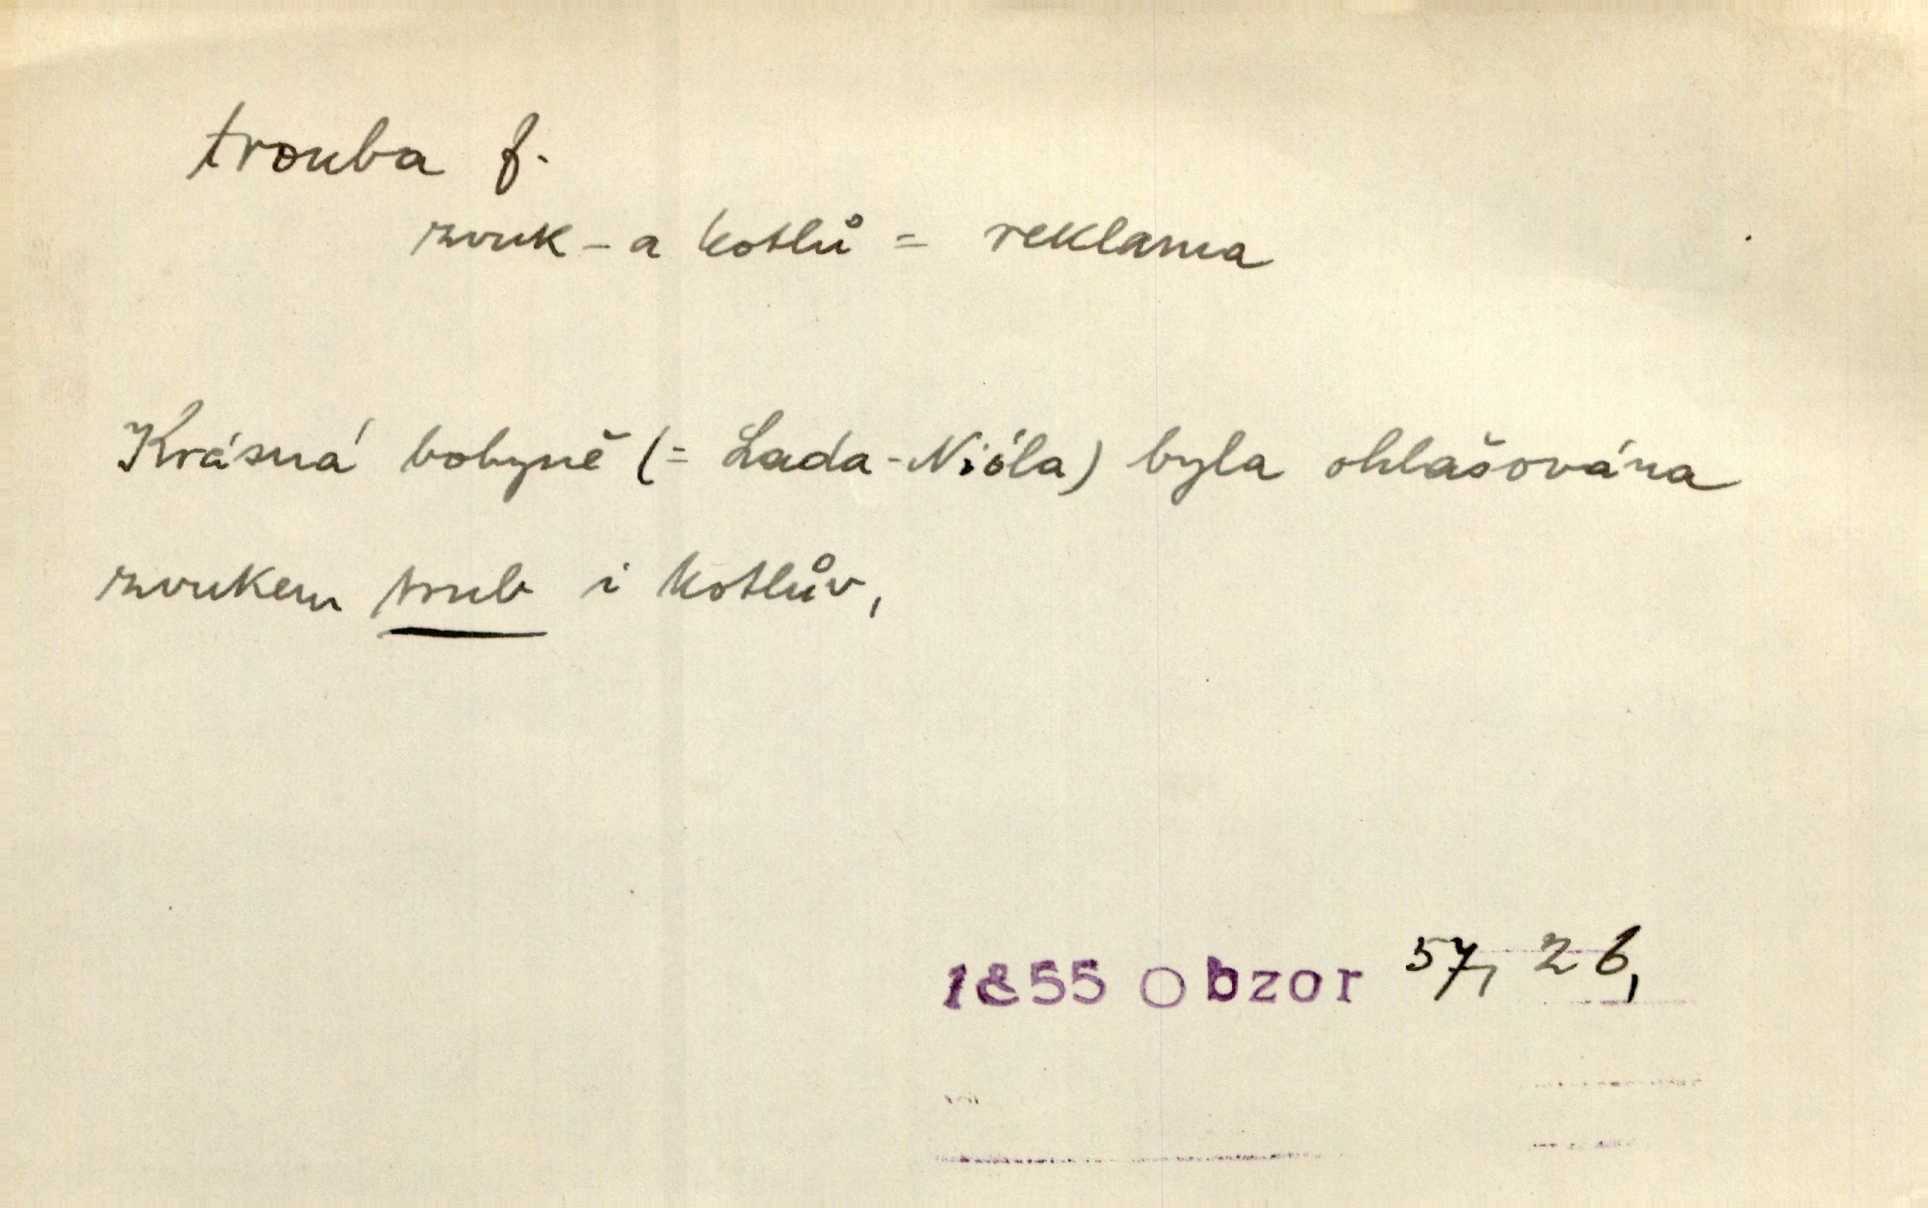 trouba f.
zvuk – a kotlů = reklama
Krásná bohyně (= Lada-Nióla) byla ohlašována
zvukem trub i kotlův,
1855 Obzor 57, 26,